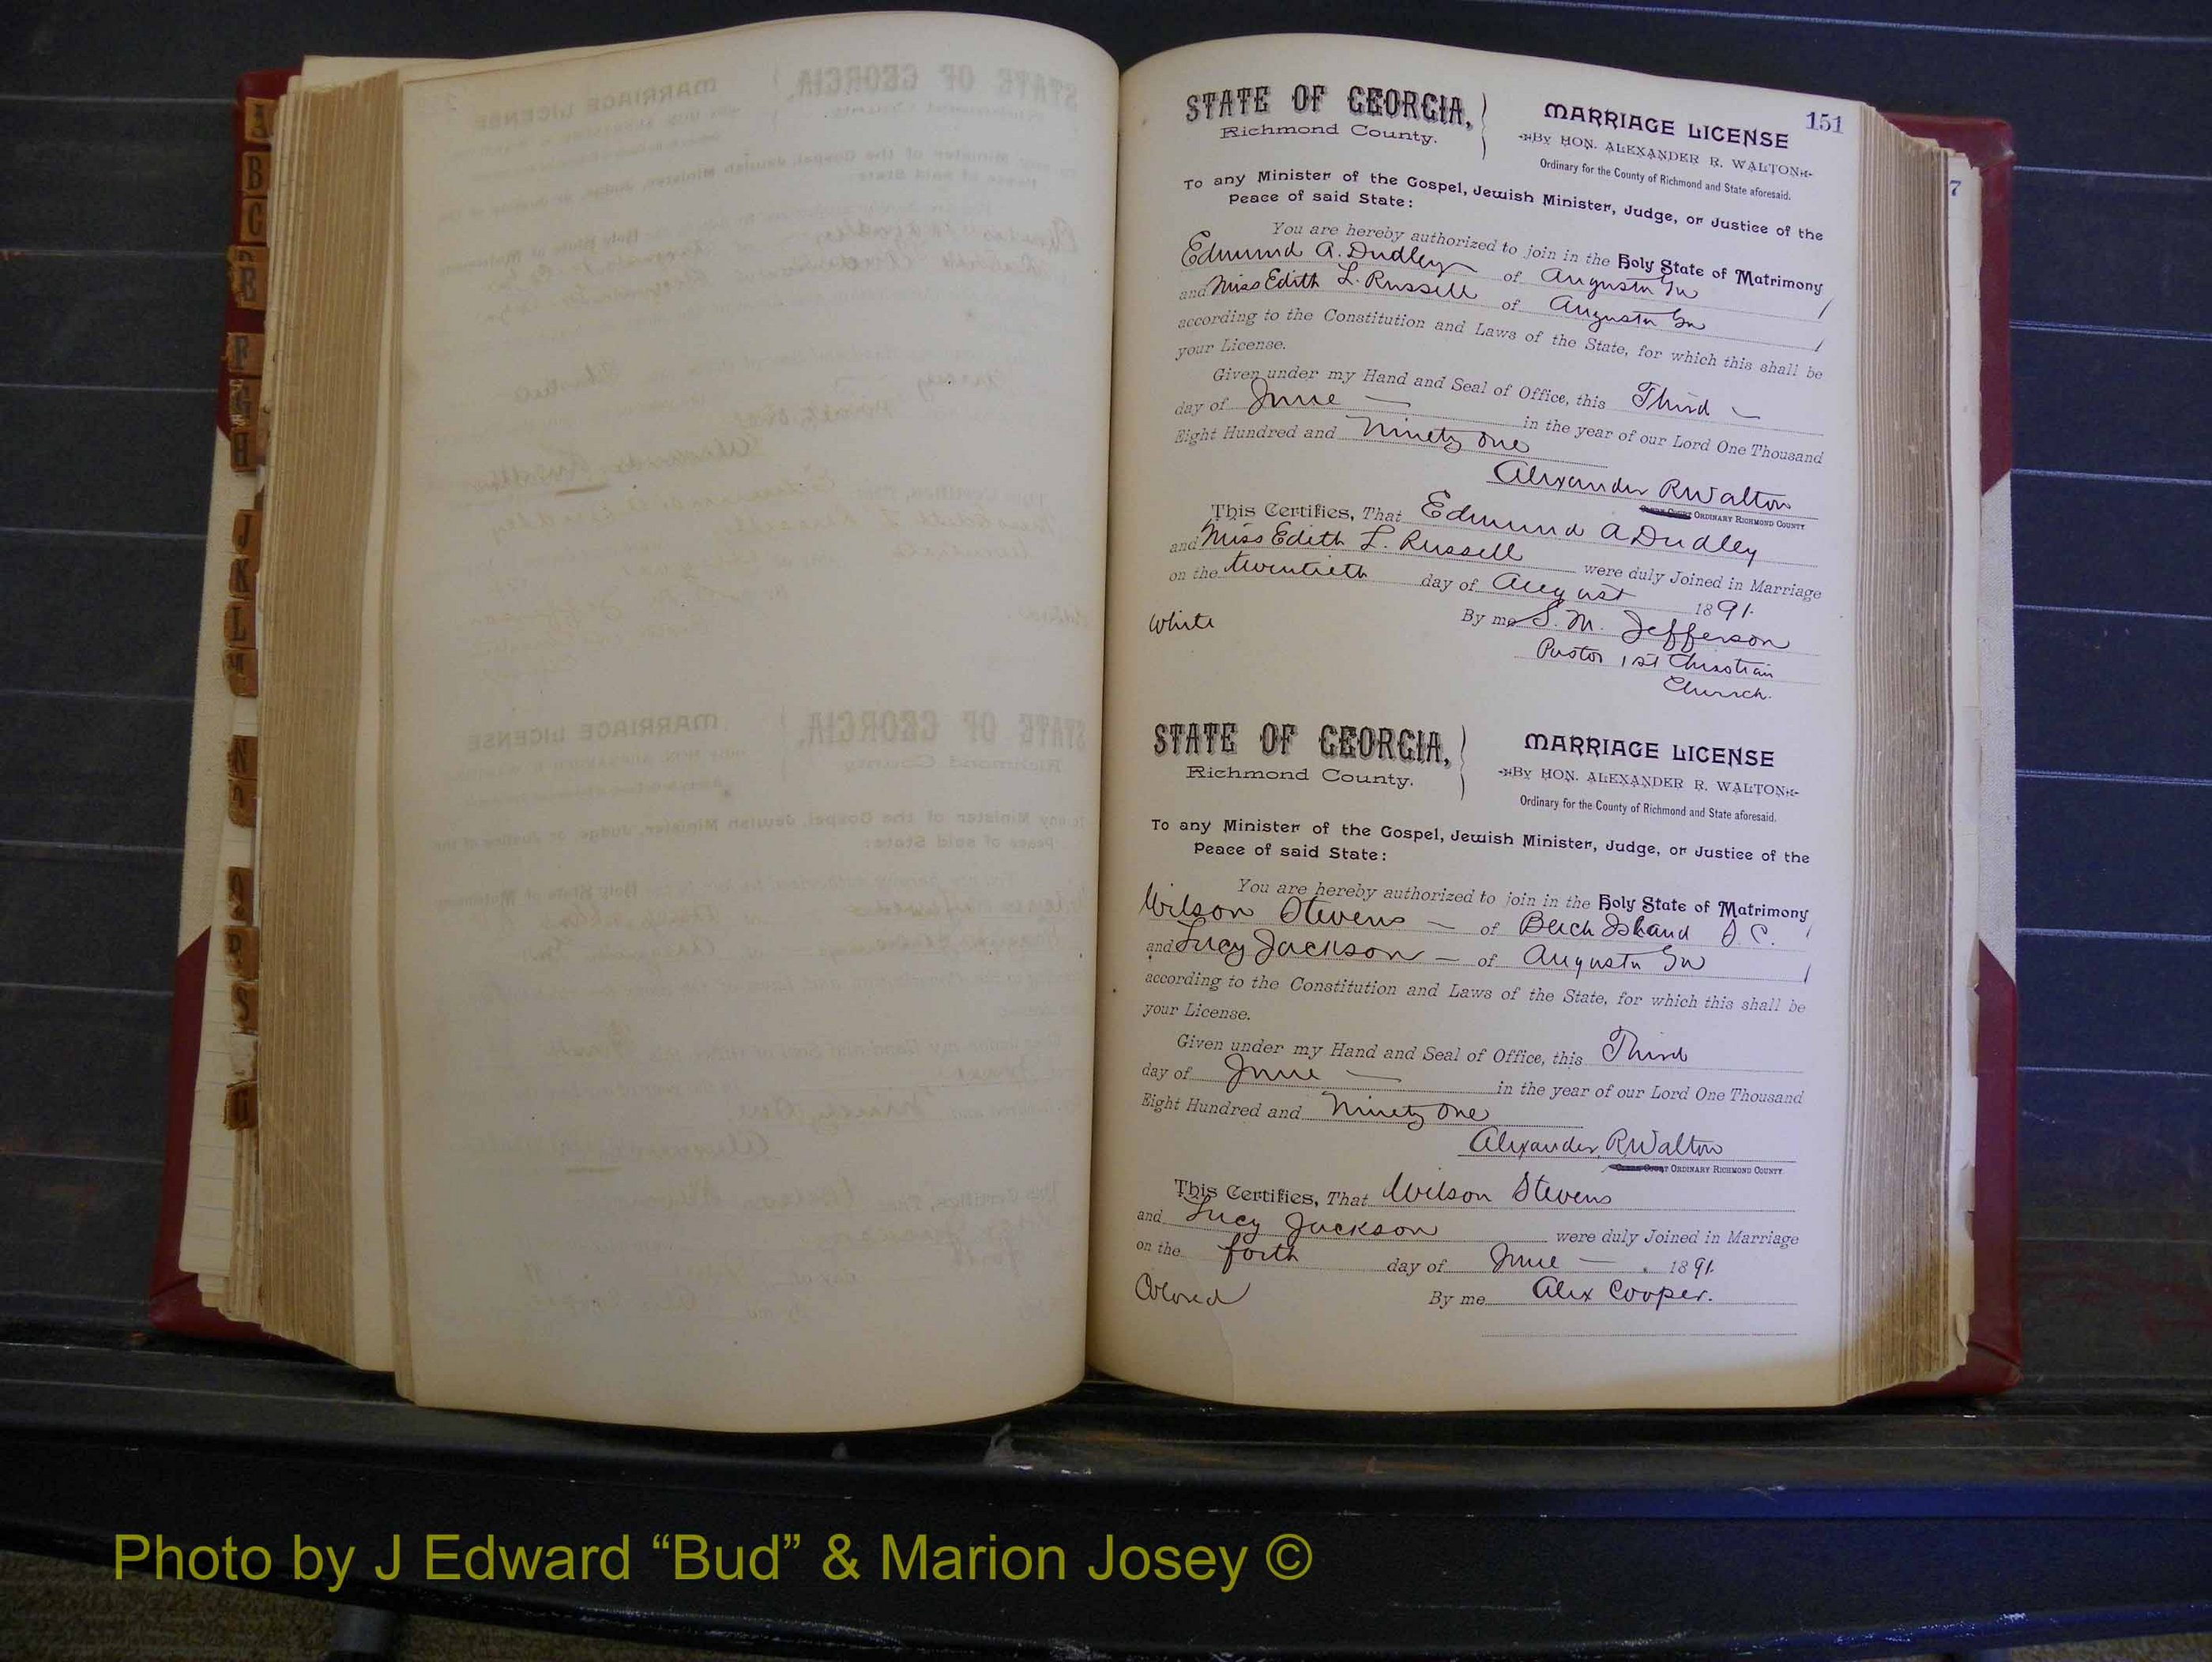 A
B
C
E
F
G
H
J
K
L
M
N
O
Q
R
S
G
151
7
STATE OF GEORGIA,
Richmond County.
MARRIAGE LICENSE
By HON. ALEXANDER R. WALTON
Ordinary for the County of Richmond and State aforesaid.
To any Minister of the Gospel, Jewish Minister, Judge, or Justice of the
Peace of said State:
You are hereby authorized to join in the Holy State of Matrimony
Edmund A. Dudley of Augusta Ga
and Miss Edith L. Russell of Augusta Ga
according to the Constitution and Laws of the State, for which this shall be
your License.
Given under my Hand and Seal of Office, this Third
day of June in the year of our Lord One Thousand
Eight Hundred and Ninety One
Alexander R Walton
ORDINARY RICHMOND COUNTY
This Certifies, That Edmund A Dudley
and Miss Edith L. Russell were duly Joined in Marriage
on the twentieth day of August 1891.
White By me S. M. Jefferson
Pastor 1st Christian
Church.
STATE OF GEORGIA,
Richmond County.
MARRIAGE LICENSE
By HON. ALEXANDER R. WALTON
Ordinary for the County of Richmond and State aforesaid.
To any Minister of the Gospel, Jewish Minister, Judge, or Justice of the
Peace of said State:
You are hereby authorized to join in the Holy State of Matrimony
Wilson Stevens of Beech Island S. C.
and Lucy Jackson of Augusta Ga
according to the Constitution and Laws of the State, for which this shall be
your License.
Given under my Hand and Seal of Office, this Third
day of June in the year of our Lord One Thousand
Eight Hundred and Ninety One
Alexander R Walton
ORDINARY RICHMOND COUNTY
This Certifies, That Wilson Stevens
and Lucy Jackson were duly Joined in Marriage
on the forth day of June 1891.
Colored By me Alex Cooper.
Photo by J Edward “Bud” & Marion Josey ©